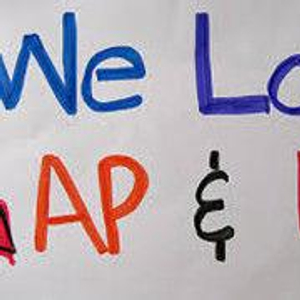 We Lo
AP &